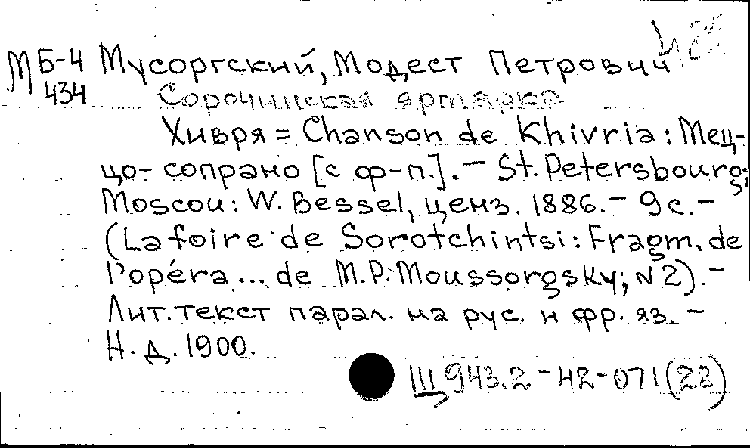 М Б-4 Мусоргский, Модест Петрович
434 Сорочинская ярмарка
Хивря = Chanson de Khivria: Мец-
цо-сопрано [с ф-п.]. — St. Petersbourg;
Moscou: W. Bessel, ценз. 1886. — 9 с. —
(La foire de Sorotchintsi: Fragm. de
l'opéra... de M.P. Moussorgsky; N 2). —
Лит. текст парал. на рус. и фр. яз. —
Н. д. 1900.
Щ 943.2-42-071(22)